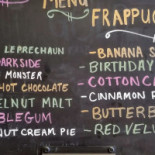 MENU
FRAPPUC
LEPRECHAUN
DARKSIDE
MONSTER
HOT CHOCOLATE
ELNUT MALT
BLEGUM
NUT CREAM PIE
- BANANA S
- BIRTHDAY
- COTTON CA
- CINNAMON R
- BUTTERB
- RED VELV